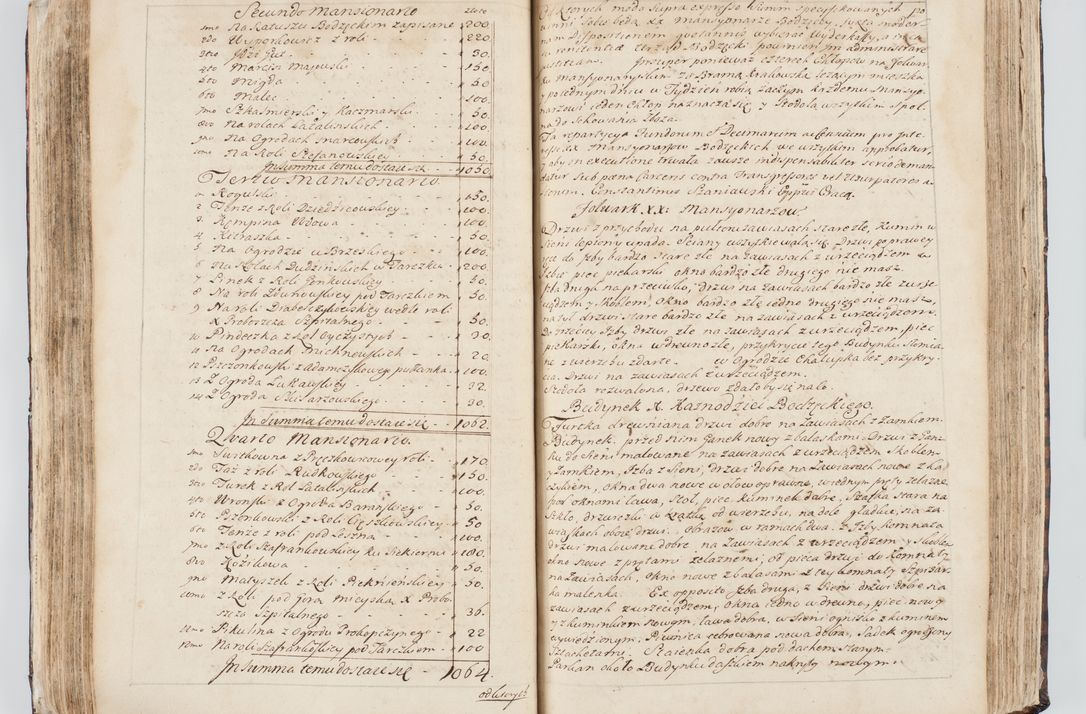 Secundo Mansionario
1mo Na Ratuszu Bodzęckim zapisane 1200.
2do Wyporkowicz z roli 220
3tio Wozi Gut 50.
4to Marcin Majewski 150
5to Migda 50
6to Malec 100.
7mo Szkaśmierski y Kaczmarski 50.
8vo Na rolach Latalinskich 100.
9no Na Ogrodach Marcowskich 100.
10mo Na Roli Stefanowskiey 50.
In Summa temu dostaie się 4050.
Tertio Mansionario.
1 Rogulski 150.
2 Tenże z Roli Dziedzicowskiey 100.
3 Kempina Wdowa 100.
4 Kitraszka 50.
5 Na Ogrodzie w Brzeskiego 100.
6 Na Rolach Dudzinskich w Tarczku 200.
7 Linek z Roli Jonkowskiey 50.
8 Na roli Zdunowskiey pod Tarczkiem 50.
9 Na roli Drabelczykowskiey wedle roli
X Proboszcza Szpitalnego 50.
10 Pindeczka z Rol Oyczystych 30.
11 Na Ogrodach Michnowskich 20.
12 Pioszonkowski z Adamczykowego pułłanka 100.
13 Z Ogroda Lukawskiey 32.
14 Z Ogroda Slusarzowskiego 30.
In Summa temu dostaie się 1062.
Qvarto Mansionario.
1mo Jurkowna z Przezkowcowey roli 170.
2do Taż z roli Rudkowskiego 150.
3tio Turek z Rol Latalinskich 100.
4to Wronski z Ogroda Baranskiego 50.
5to Pizonkowski z Roli Cieszkowskiey 50
6to Tenże z roli pod Leszną 100.
7mo z Roli Szafrankowskiey ku Siekiernu 100.
8vo Koziłkowa 50.
9no Matyszek z Roli Piekninskiey 50.
10mo z Rolu pod gora mieyska X Probo
szcza Szpitalnego 36.
11mo Pikulina z Ogrodu Prokopczynego 22
12mo Na roli Szafrankowskiey pod Tarczkiem 100
In Summa temu dostaie się 1064.
od których
Od których modo supra expresso summ specyfikowanych po
winni sobie będą XX mansyonarze Bodzęccy, juxta moder
nam Dispositionem quotannie wybierać Wyderkały, a in ca
Insuper ponieważ czterech chłopów na folwar
ku mansyonarskim za Bramą Krakowską leżącym mieszka
y po iednym dniu w Tydzień robią zaczym każdemu Mansyo
narzowi ieden chłop naznacza się y Stodoła wszytkim spol
na do schowania zboża.
Ta repartycya Fundorum et Decimarum ac Censuum pro inte
resse XX Mansyonarzow Bodzęckich we wszytkim approbatur,
datur sub poena Carceris contra Transgressores vel Usurpatores a
Constantinus Szaniawski Eppus Crac.
Folwark XX: Mansyonarzow.
Drzwi z przychodu na pułtoru zawiasach stare złe, kumin w
Sieni lepiony upada. Sciany wszytkie walą się. Drzwi po prawey
ręce do Izby bardzo stare złe na zawiasach z wrzeciądzem w
Izbie piec piekarski okno bardzo złe drugiego nie masz.
Izba druga na przeciwko, Drzwi na zawiasach bardzo złe z wrze
wądzem y skoblem, Okno bardzo złe iedno drugiego nie masz,
na tył drzwi stare bardzo złe na zawiasach z wrzeciądzem.
Do trzeciey Izby drzwi złe na zawiasach z wrzeciądzem, piec
piekarski, okna w drewno złe, przykrycie tego Budynku słomia
ne z wierzchu zdarte. w Ogrodzie Chałupka bez przykry
cia. Drzwi na zawiasach z wrzeciądzem.
Stodoła rozwalona, drzewo zdałoby się na co.
Budynek X. Kaznodziei Bodzęckiego.
Furtka drewniana drzwi dobre na zawiasach z zamkiem.
Budynek. przed nim Ganek nowy z balaskami. Drzwi z Gan
ku do Sieni malowane na zawiasach z wrzeciądzem skoblem
y zamkiem, Izba z Sieni, drzwi dobre na zawiasach nowe z ha
czykiem, okna dwa nowe w ołow oprawne, w iednym pręty żelazne,
pod oknami ława, stoł, piec, kuminek dobre, Szafka stara na
szkło, drzwiczki w kratkę od wierzchu, na dole gładkie, na za
wiaskach oboie drzwi. Obrazow w ramach dwa. z Izby Komnata
drzwi malowane dobre na zawiasach z wrzeciądzem y skoblem
okno nowe z prętami żelaznemi, od pieca drzwi do Komnatki
na zawiasach, okno nowe z balasami z tey komnaty Szpizar
ka malenka. Ex opposito Izba druga, z Sieni drzwi dobre na
zawiasach z wrzeciądzem, Okna iedno w drewno, piec nowy
y z kuminkiem nowym, ława dobra, w Sieni ognisko z kuminem
wywiedzionym; Piwnica cebrowana nowa dobra, Sadek ogrodzony
Sztachetami. Staienka dobra pod dachem starym.
Parkan około Budynku daszkiem nakryty nowym.